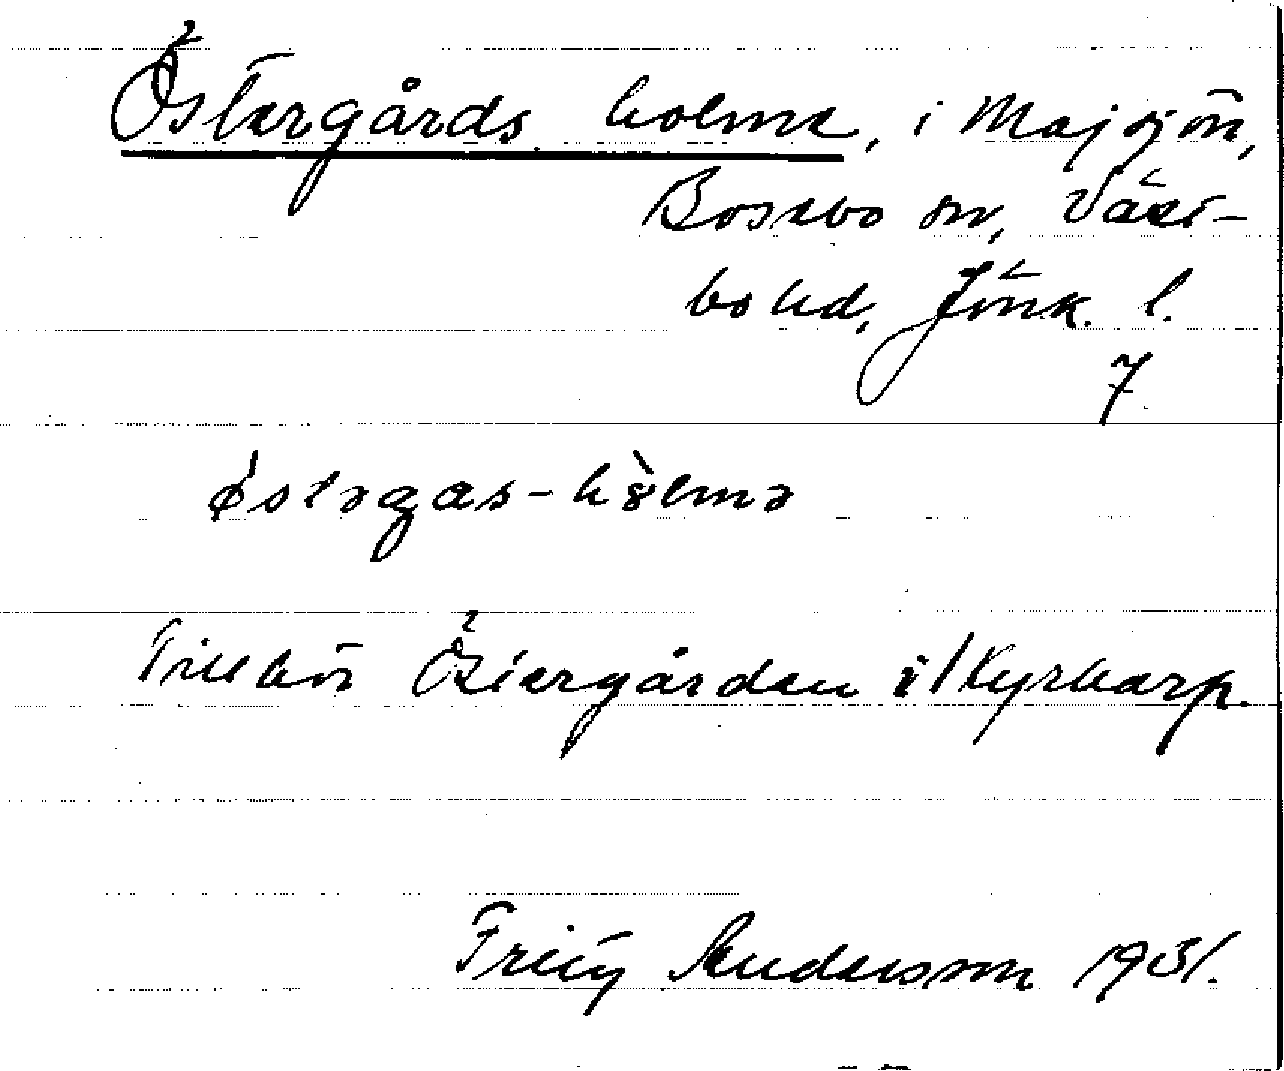 Östergårds holme, i Majsjön,
Bosebo sn, Väst-
bo hd, Jönk. l.
7
østəgas-hòlmə
Tillhör Östergården i Kyrkarp.
Fritz Andersson 1931.